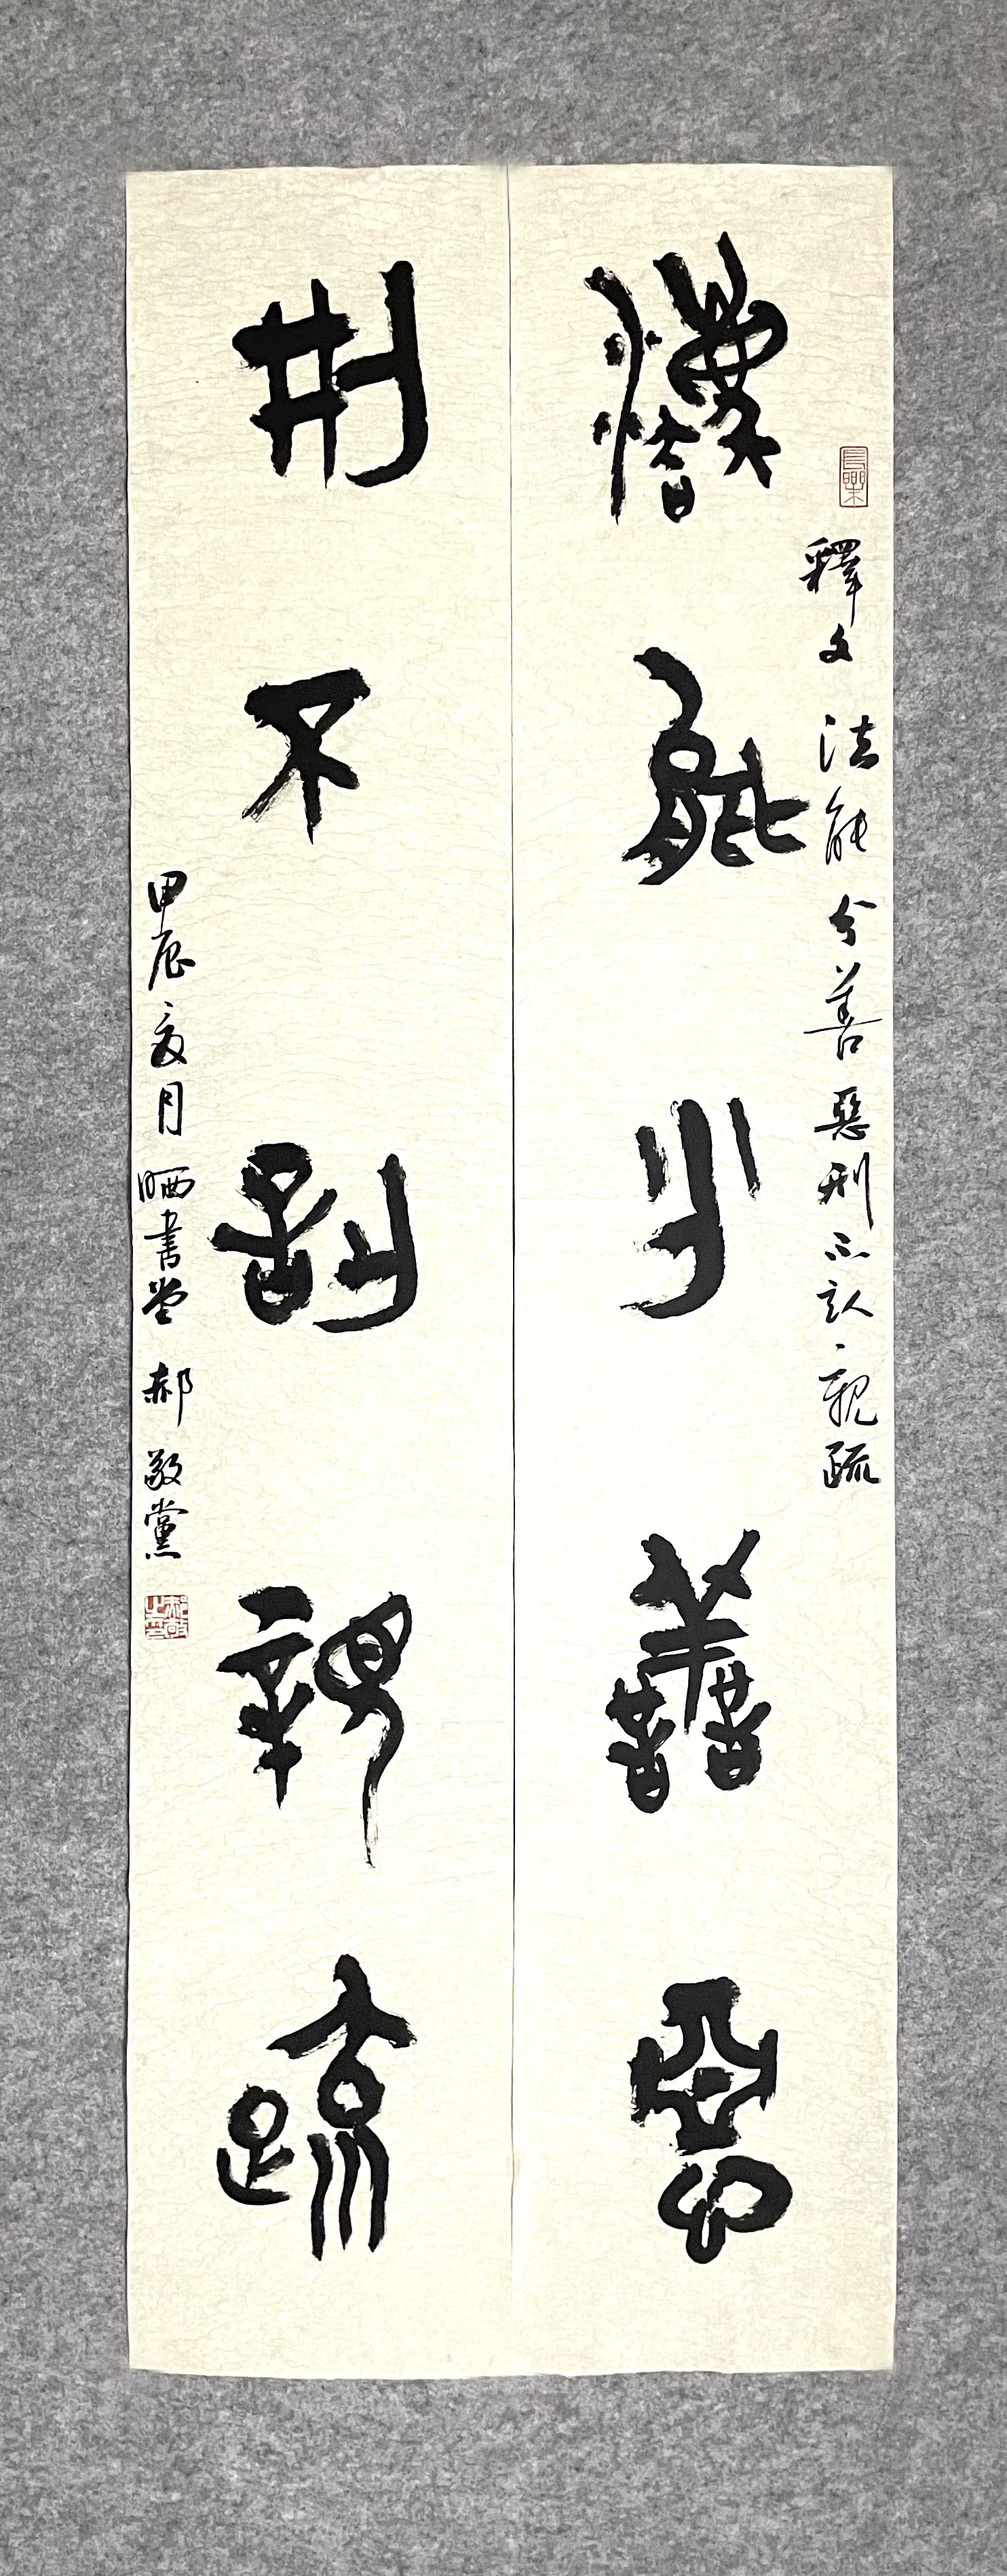 灋能分譱惡
釋文 法能分善惡刑不認親疏
刑不認親疏
甲辰夏月 晒書堂 郝敬黨
長樂